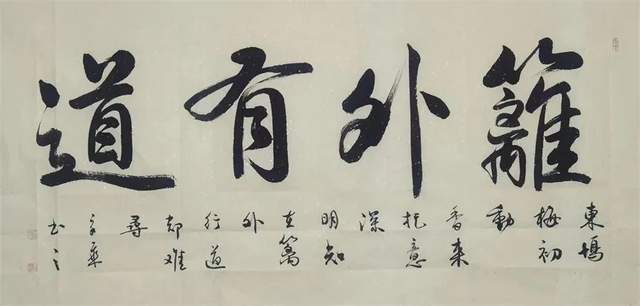 籬外有道
東塢
梅初
動
香来
托意
深
明知
在篱
外
行道
却难
尋
书之